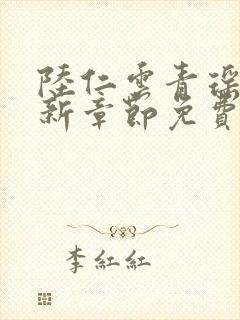 陸仁雲青瑶
新章節免費
李紅紅